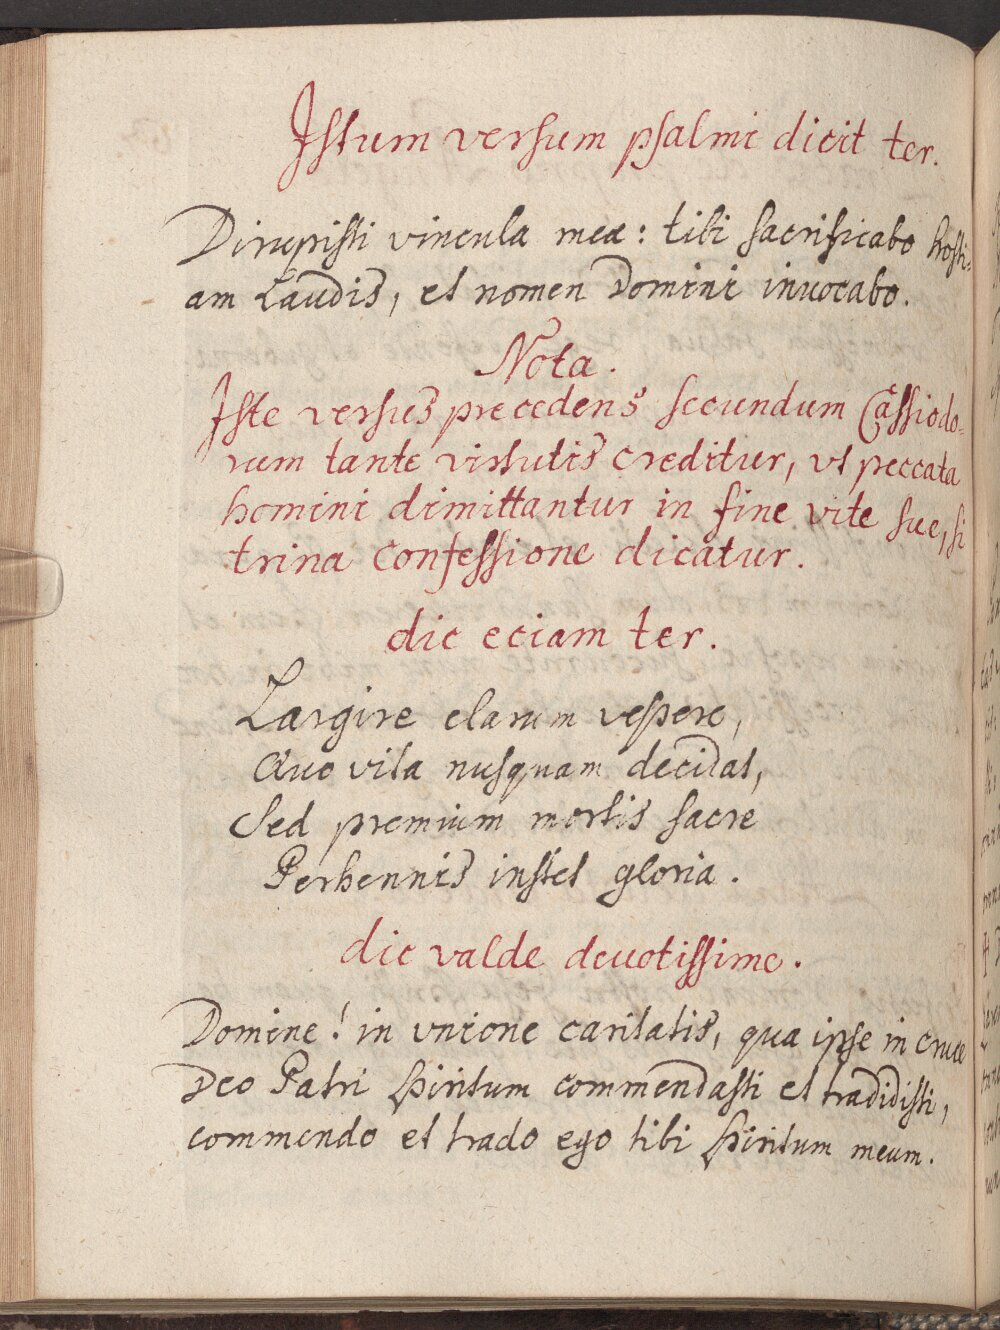 Istum versum psalmi dicit ter.
Dirupisti vincula mea: tibi sacrificabo hosti=
am Laudis, et nomen Domini invocabo.
Nota.
Iste versus precedens secundum Cassiodo=
rum tante virtutis creditur, vt peccata
homini dimittantur in fine vite sue, si
trina confessione dicatur.
dic eciam ter.
Largire clarum vespere,
Quo vita nusquam decidat,
Sed premium mortis sacre
Perhennis instet gloria.
dic valde deuotissime.
Domine! in vnione caritatis, qua ipse in cruce
Deo Patri spiritum commendasti et tradidisti,
commendo et trado ego tibi spiritum meum.